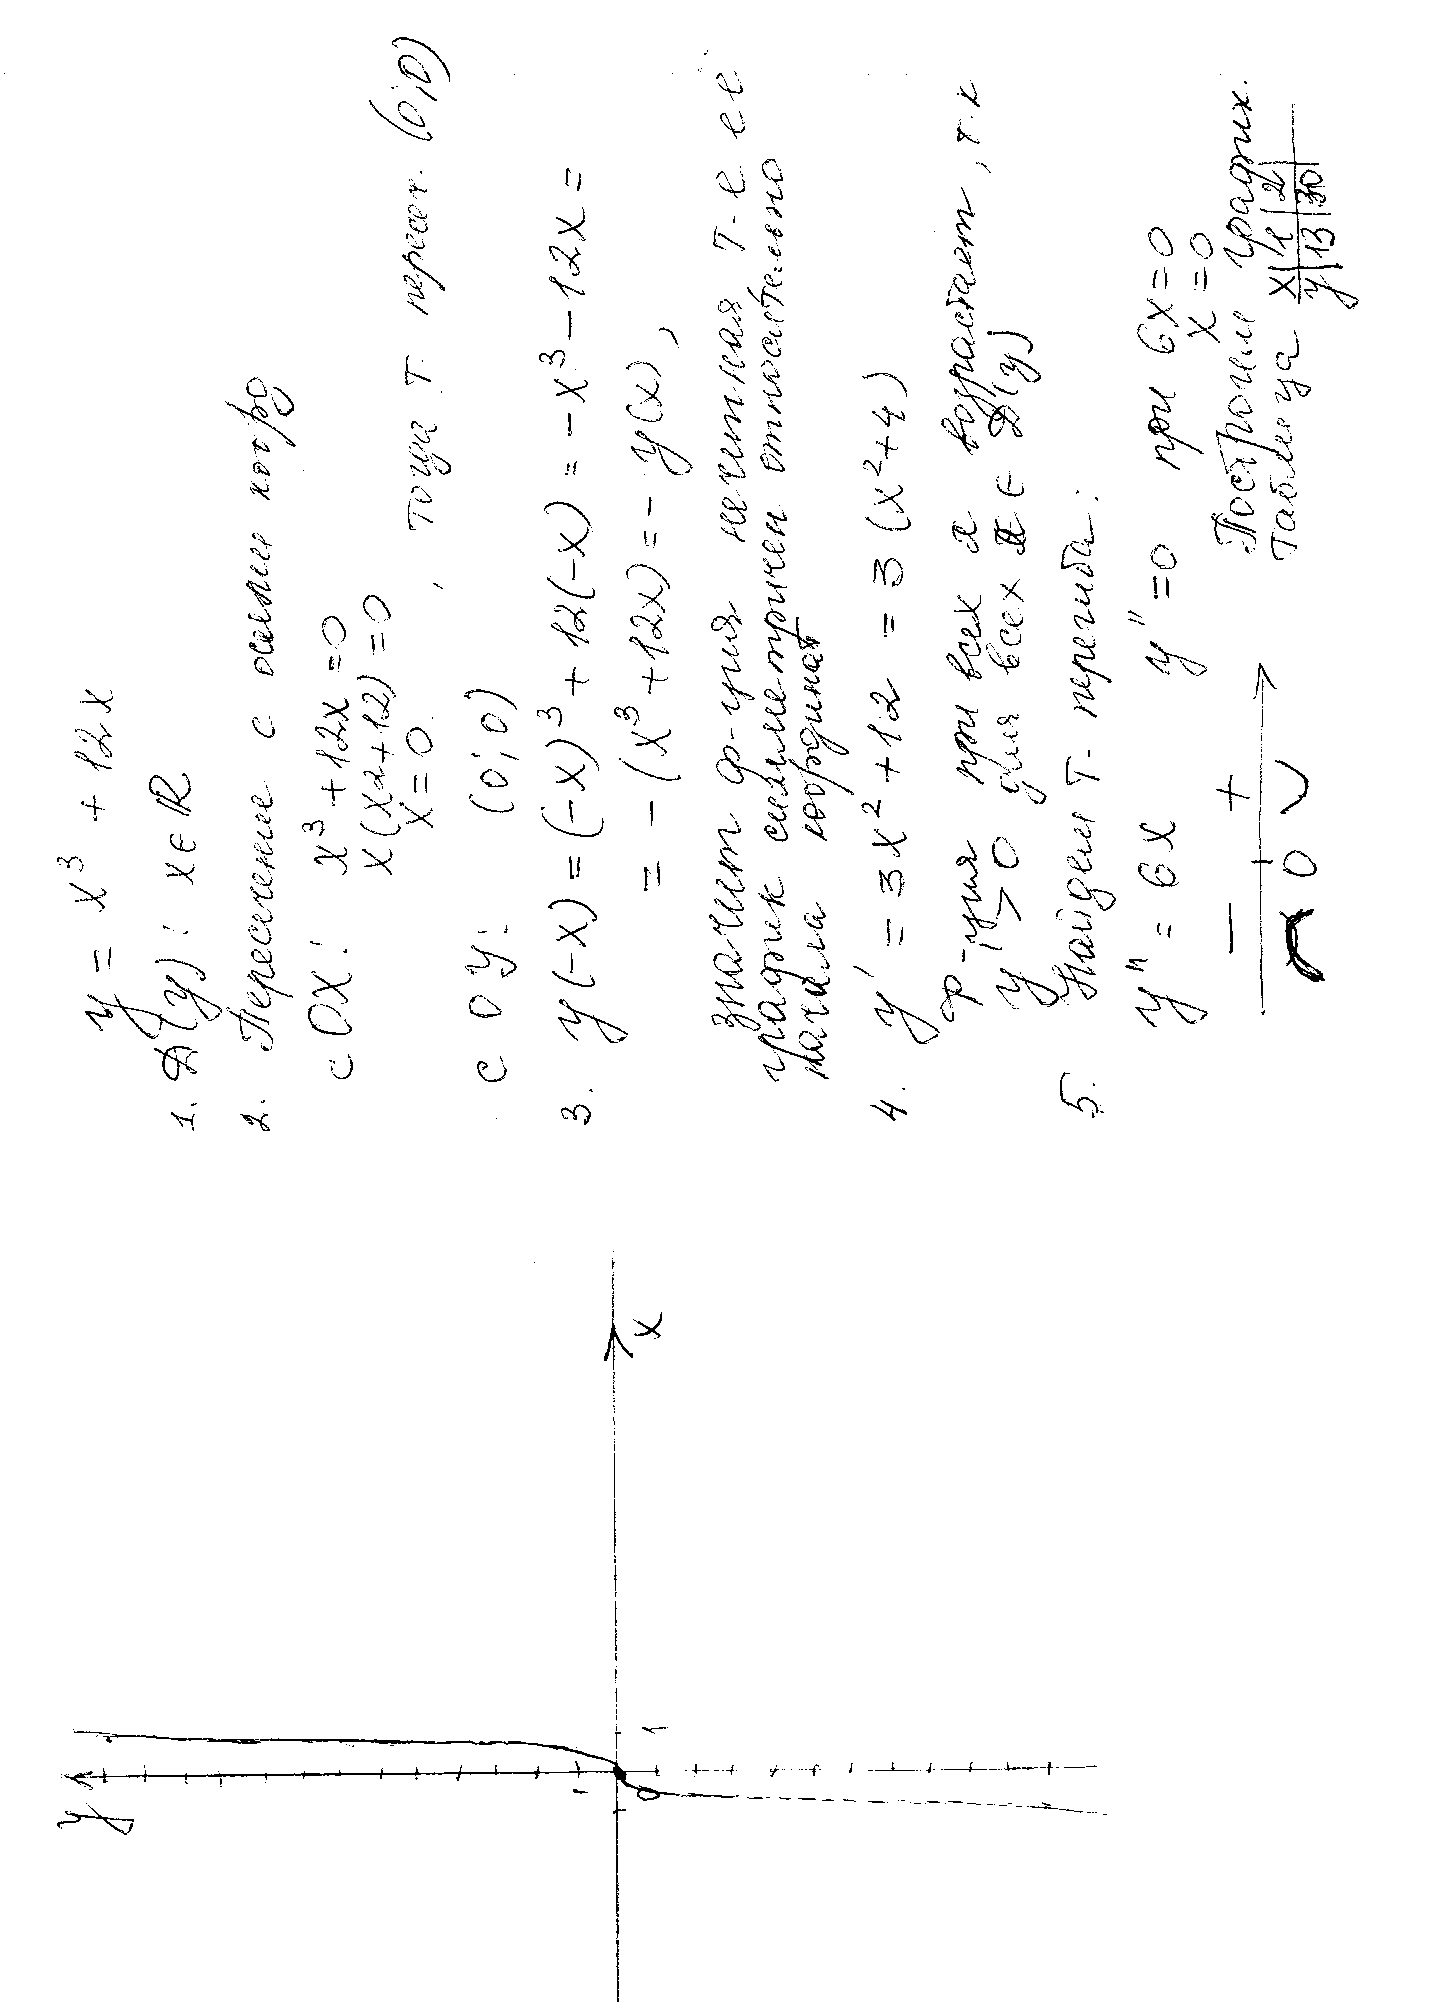 y = x³ + 12x
1. D(y): x ∈ R
2. Пересечение с осями коорд
с OX: x³ + 12x = 0
x(x2+12) = 0
x = 0
, тогда т. пересеч. (0;0)
с OY: (0;0)
3. y(-x) = (-x)³ + 12(-x) = -x³ - 12x =
= -(x³ + 12x) = - y(x),
значит ф-ция нечетная т-е её
график симметричен относительно
начала координат
4. y' = 3x² + 12 = 3(x² + 4)
ф-ция при всех x возрастает, т.к
y' > 0 для всех x ∈ D(y)
5. Найдем т. перегиба:
y'' = 6x y'' = 0 при 6x = 0
x = 0
- +
0
Построим график.
Таблица
x | 1 | 2 |
y | 13 | 30 |
y
x
1
1
0